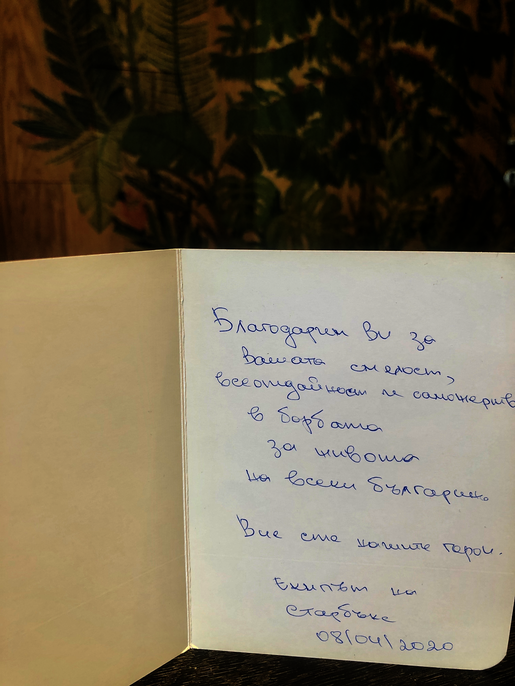 Благодарим Ви за
Вашата смелост,
всеотдайност и саможертв
в борбата
за живота
на всеки българин.
Вие сте нашите герои.
Екипът на
Старбъкс
08/04/2020